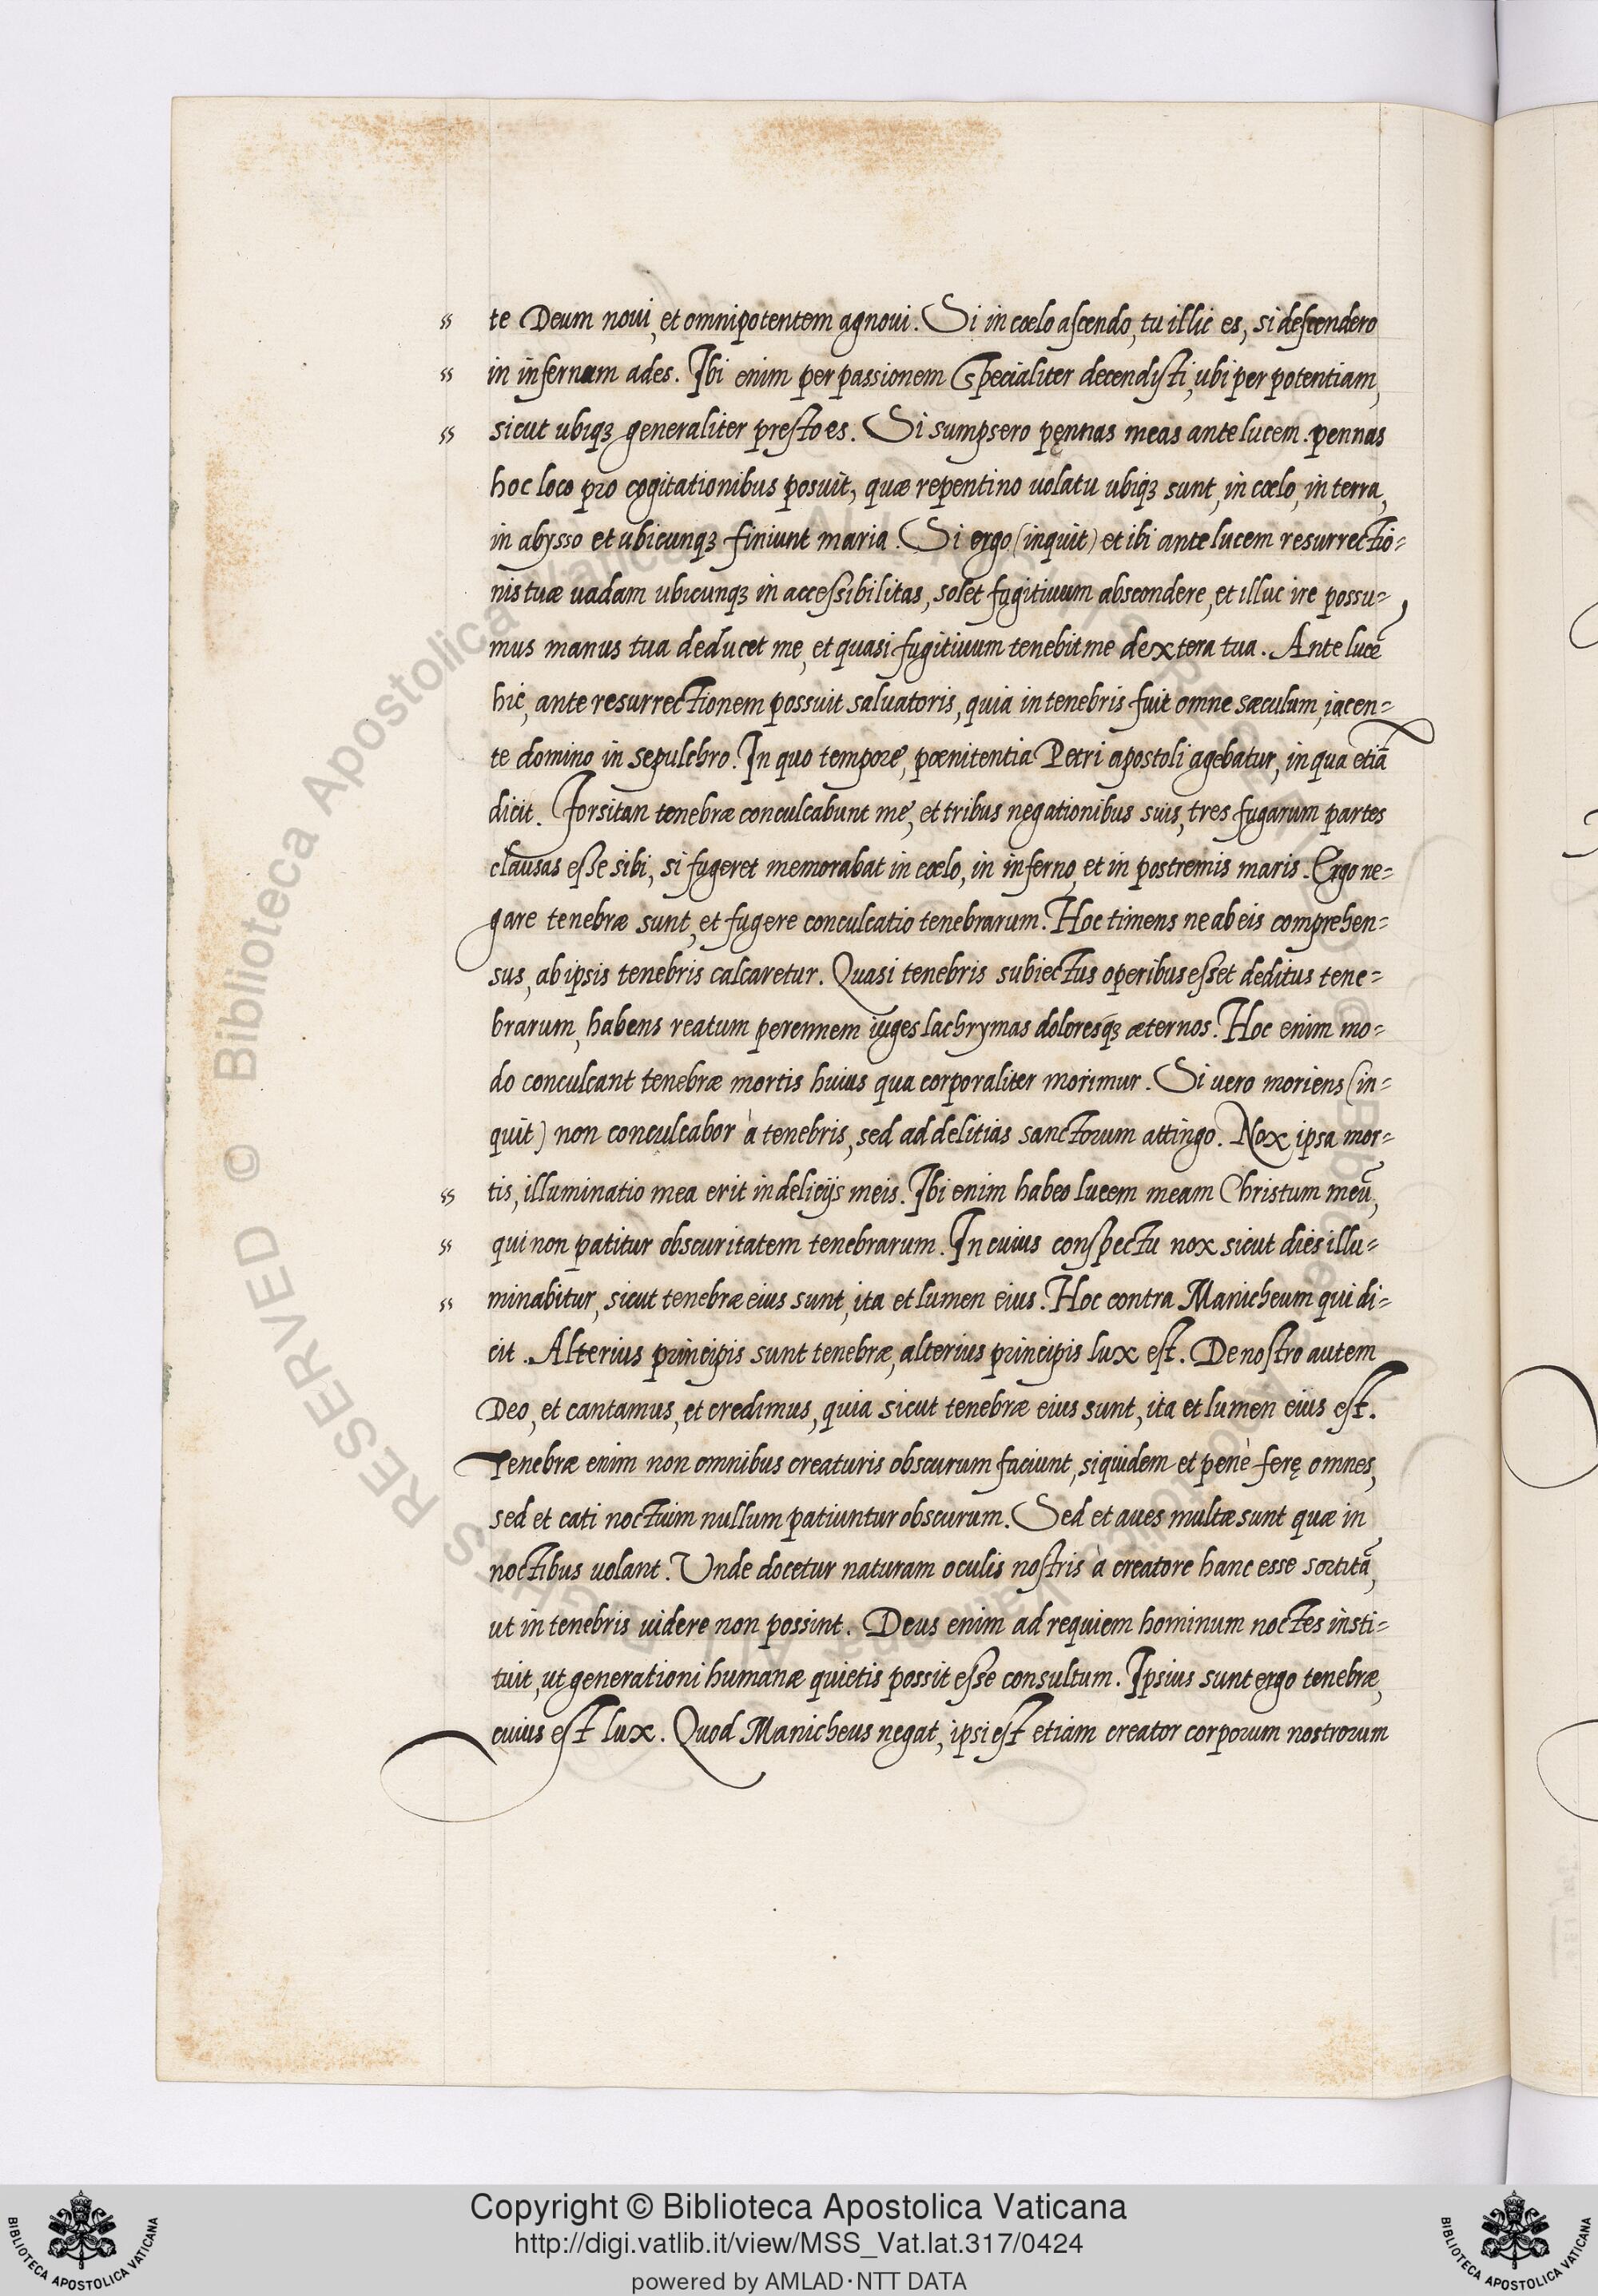 " te Deum noui, et omnipotentem agnoui. Si in cœlo ascendo, tu illic es, si descendero
" in infernum ades. Ibi enim per passionem specialiter decendisti, ubi per potentiam,
" sicut ubiqꝫ generaliter presto es. Si sumpsero pęnnas meas ante lucem. pennas
hoc loco pro cogitationibus posuit, quæ repentino uolatu ubiqꝫ sunt, in cœlo, in terra,
in abysso et ubicunqꝫ finiunt maria. Si ergo (inquit) et ibi ante lucem resurrectio=
nis tuæ uadam ubicunqꝫ in accessibilitas, solet fugitiuum abscondere, et illuc ire possu=
mus manus tua deducet me, et quasi fugitiuum tenebit me dextera tua. Ante lucē
hic, ante resurrectionem possuit saluatoris, quia in tenebris fuit omne sæculum, iacen=
te domino in sepulchro. In quo tempore, pœnitentia Petri apostoli agebatur, in qua etiā
dicit. Forsitan tenebræ conculcabunt me, et tribus negationibus suis, tres fugarum partes
clausas esse sibi, si fugeret memorabat in cœlo, in inferno, et in postremis maris. Ergo ne=
gare tenebræ sunt, et fugere conculcatio tenebrarum. Hoc timens ne ab eis comprehen=
sus, ab ipsis tenebris calcaretur. Quasi tenebris subiectus operibus esset deditus tene=
brarum, habens reatum perennem iuges lachrymas doloresqꝫ æternos. Hoc enim mo=
do conculcant tenebræ mortis huius qua corporaliter morimur. Si uero moriens (in=
quit) non conculcabor à tenebris, sed ad delitias sanctorum attingo. Nox ipsa mor=
" tis, illuminatio mea erit in delicijs meis. Ibi enim habeo lucem meam Christum meū,
" qui non patitur obscuritatem tenebrarum. In cuius conspectu nox sicut dies illu=
" minabitur, sicut tenebræ eius sunt, ita et lumen eius. Hoc contra Manicheum qui di=
cit. Alterius principis sunt tenebræ, alterius principis lux est. De nostro autem
Deo, et cantamus, et credimus, quia sicut tenebræ eius sunt, ita et lumen eius est.
Tenebræ enim non omnibus creaturis obscurum faciunt, siquidem et penè ferę omnes,
sed et cati noctuim nullum patiuntur obscurum. Sed et aues multæ sunt quæ in
noctibus uolant. Unde docetur naturam oculis nostris à creatore hanc esse sortitā,
ut in tenebris uidere non possint. Deus enim ad requiem hominum noctes insti=
tuit, ut generationi humanæ quietis possit esse consultum. Ipsius sunt ergo tenebræ,
cuius est lux. Quod Manicheus negat, ipsi est etiam creator corporum nostrorum
Copyright © Biblioteca Apostolica Vaticana
http://digi.vatlib.it/view/MSS_Vat.lat.317/0424
powered by AMLAD·NTT DATA
BIBLIOTECA APOSTOLICA VATICANA
BIBLIOTECA APOSTOLICA VATICANA